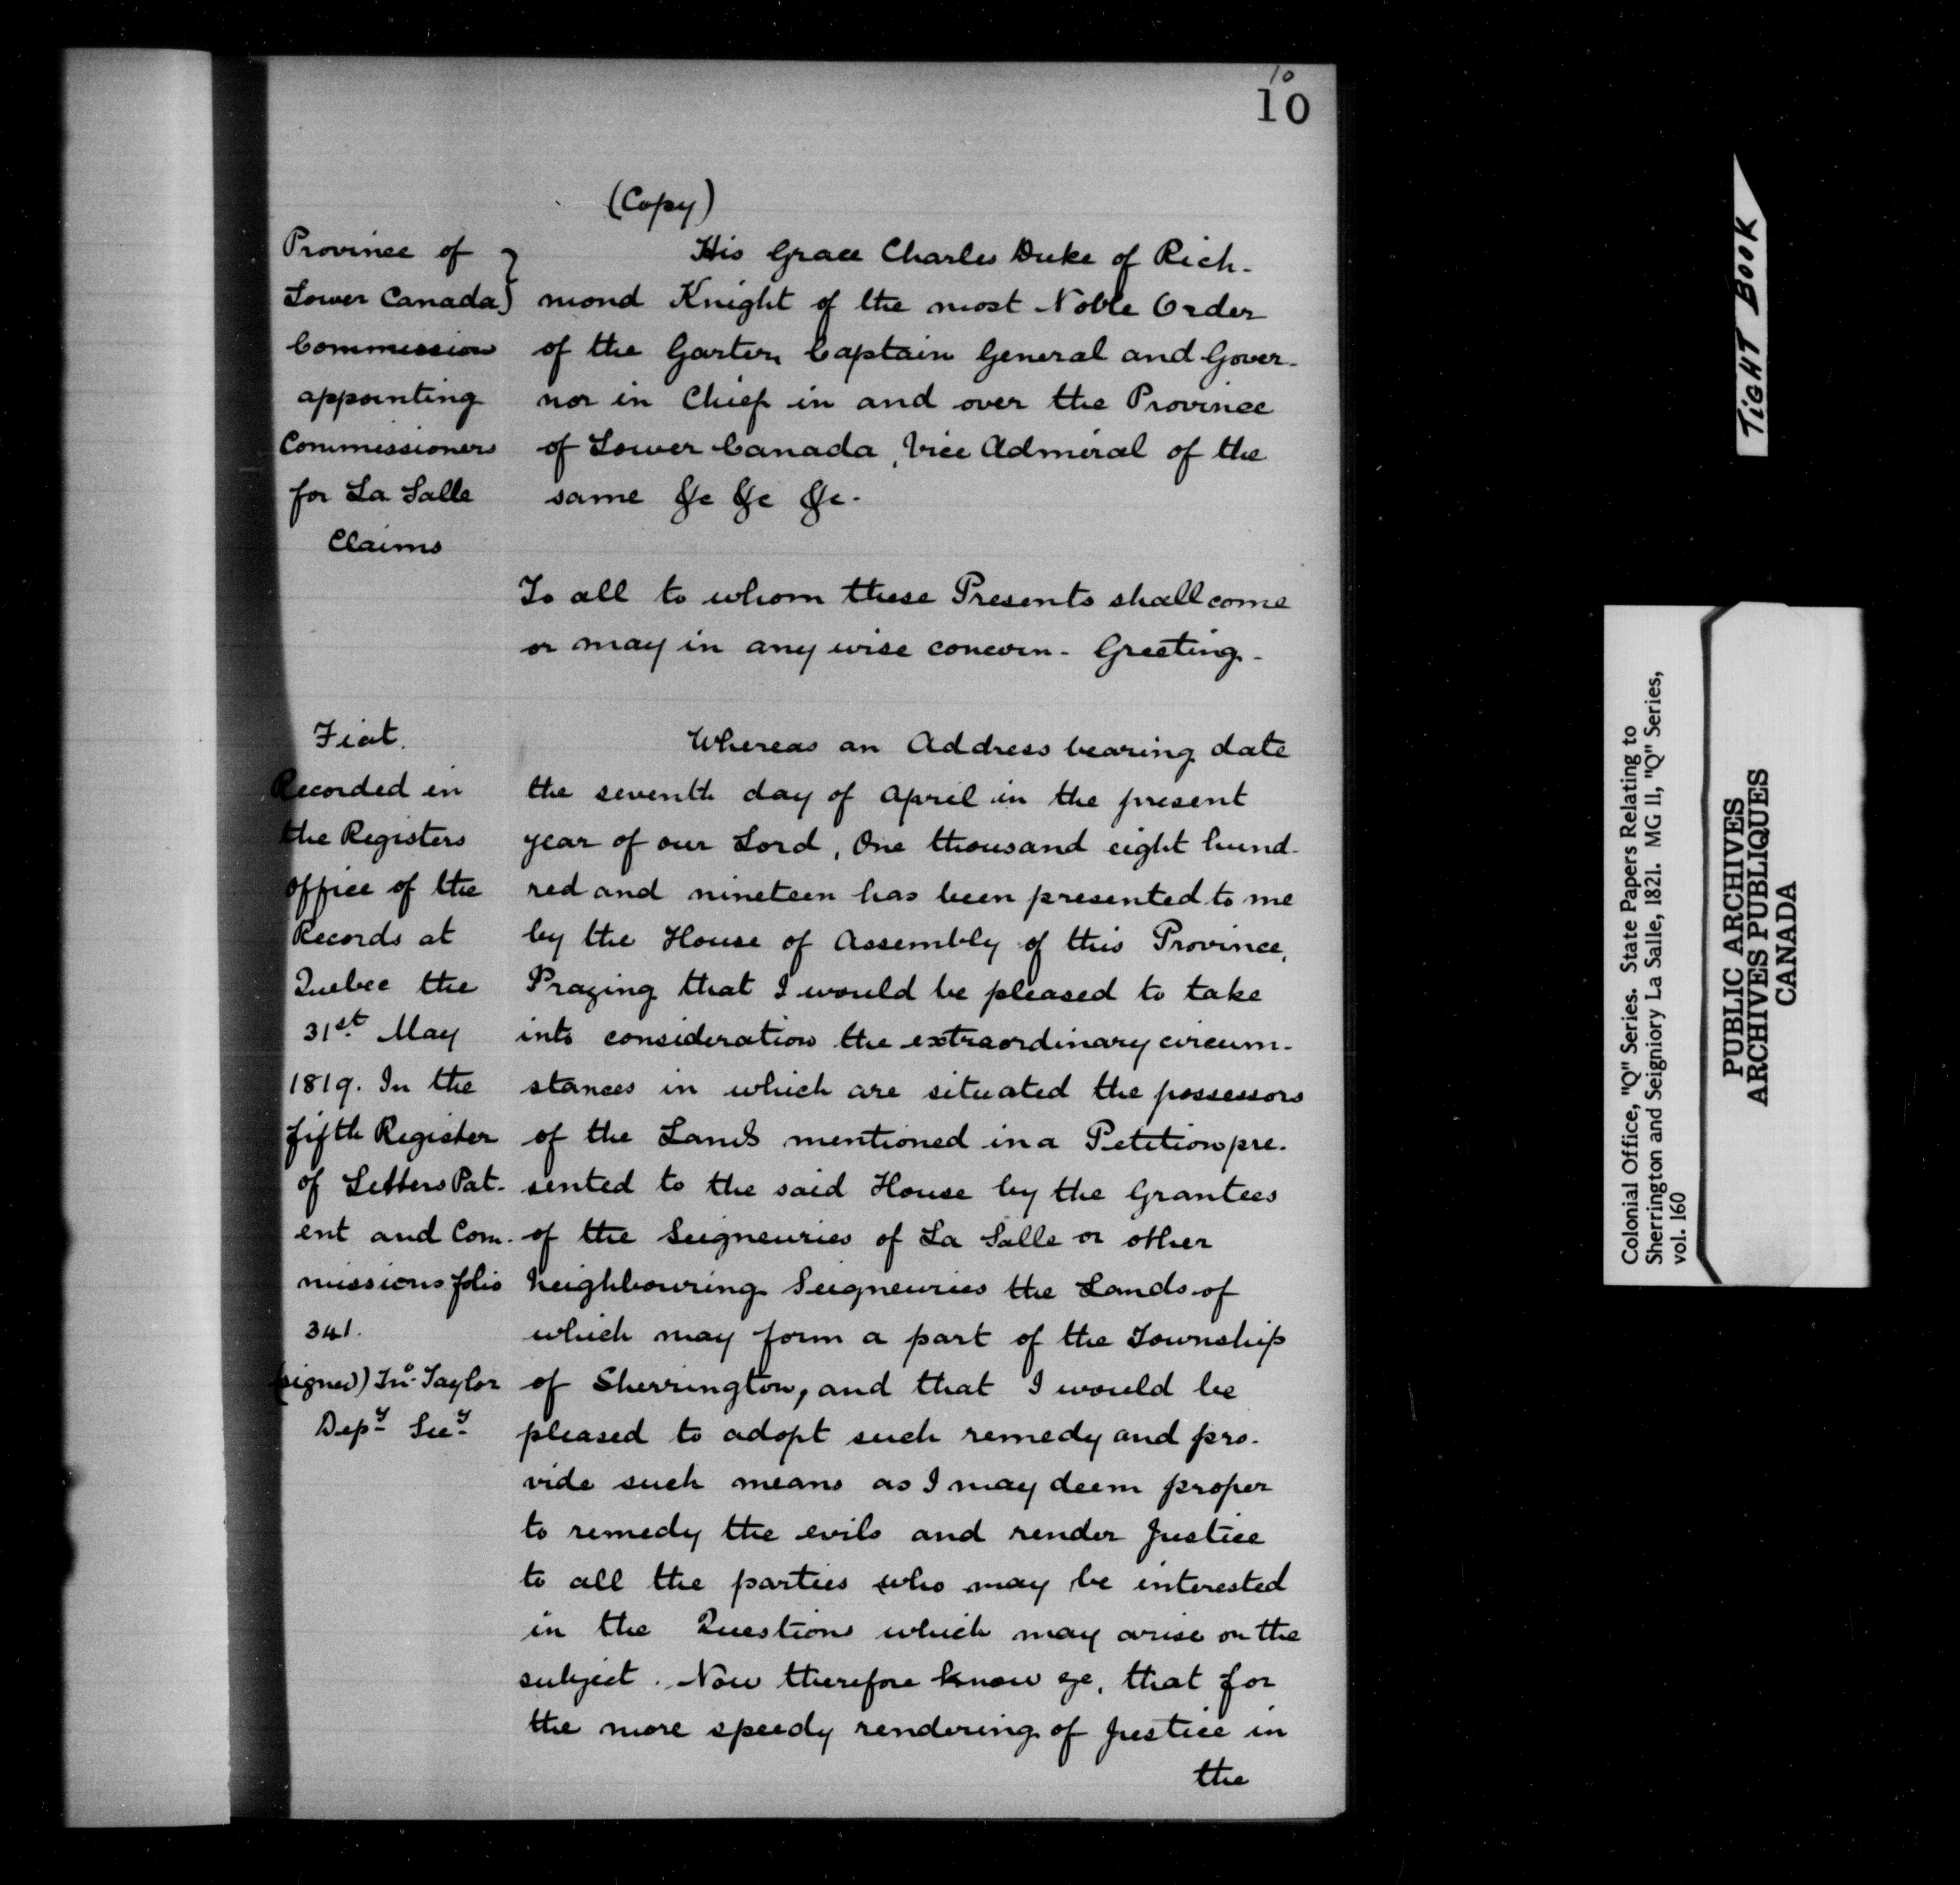 10
10
(Copy)
Province of
Lower Canada
Commission
appointing
Commissioners
for La Salle
Claims
His Grace Charles Duke of Rich-
mond Knight of the most Noble Order
of the Garter, Captain General and Gover-
nor in Chief in and over the Province
of Lower Canada, Vice Admiral of the
same &c &c &c.
To all to whom these Presents shall come
or may in any wise concern - Greeting -
Fiat.
Recorded in
the Registers
office of the
Records at
Quebec the
31st May
1819. In the
fifth Register
of Letters Pat-
ent and Com-
missions folio
341.
(signed) Jno. Taylor
Depy Secy
Whereas an Address bearing date
the seventh day of April in the present
year of our Lord, One thousand eight hund-
red and nineteen has been presented to me
by the House of Assembly of this Province,
Praying that I would be pleased to take
into consideration the extraordinary circum-
stances in which are situated the possessors
of the Lands mentioned in a Petition pre-
sented to the said House by the Grantees
of the Seigneuries of La Salle or other
neighbouring Seigneuries the Lands of
which may form a part of the Township
of Sherrington, and that I would be
pleased to adopt such remedy and pro-
vide such means as I may deem proper
to remedy the evils and render Justice
to all the parties who may be interested
in the Questions which may arise on the
subject. Now therefore know ye, that for
the more speedy rendering of Justice in
the
TIGHT BOOK
Colonial Office, "Q" Series. State Papers Relating to
Sherrington and Seigniory La Salle, 1821. MG 11, "Q" Series,
vol. 160
PUBLIC ARCHIVES
ARCHIVES PUBLIQUES
CANADA